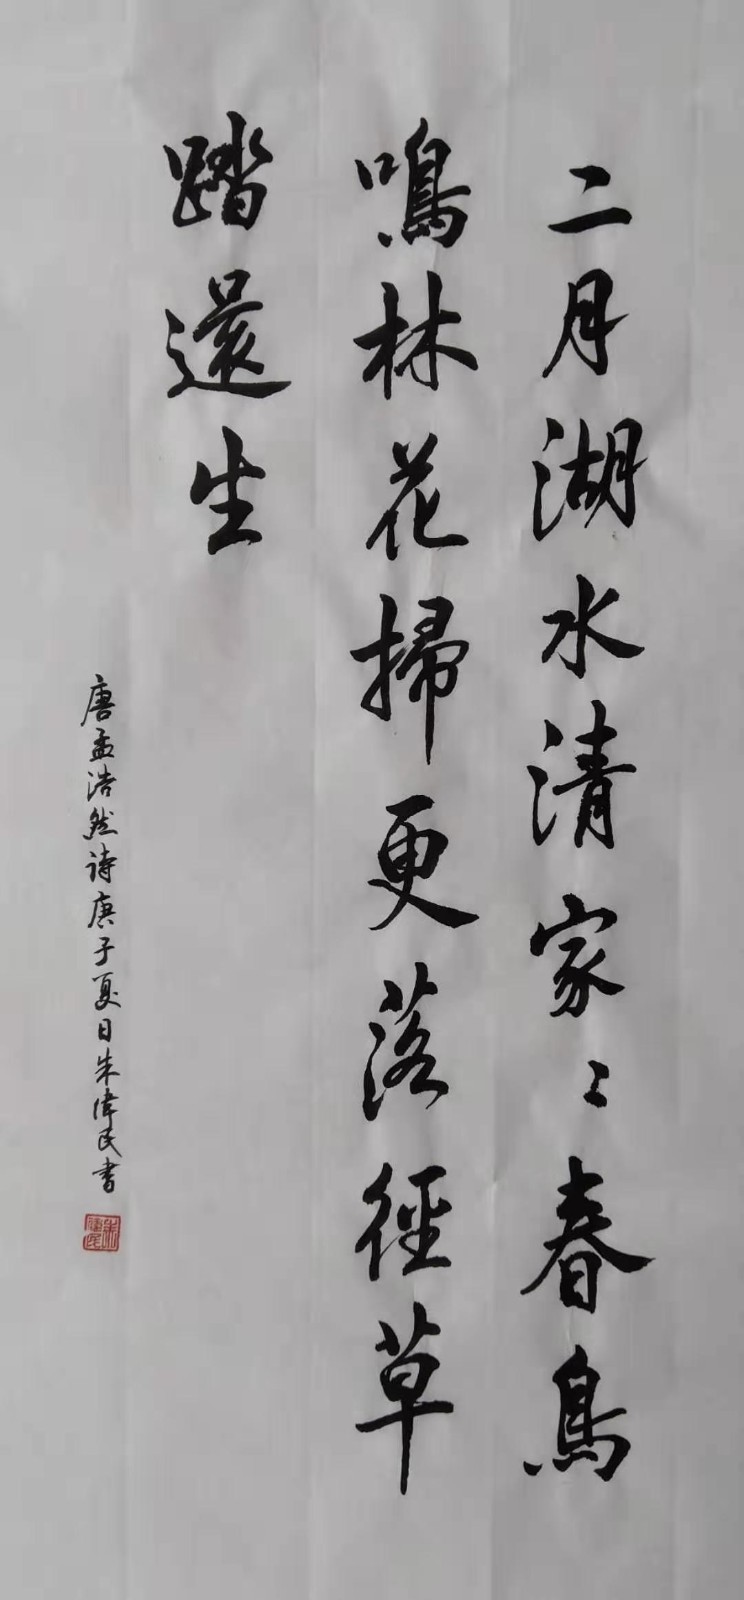 二月湖水清家〻春鳥
鳴林花掃更落徑草
踏還生
唐孟浩然诗庚子夏日朱偉民书
朱偉民